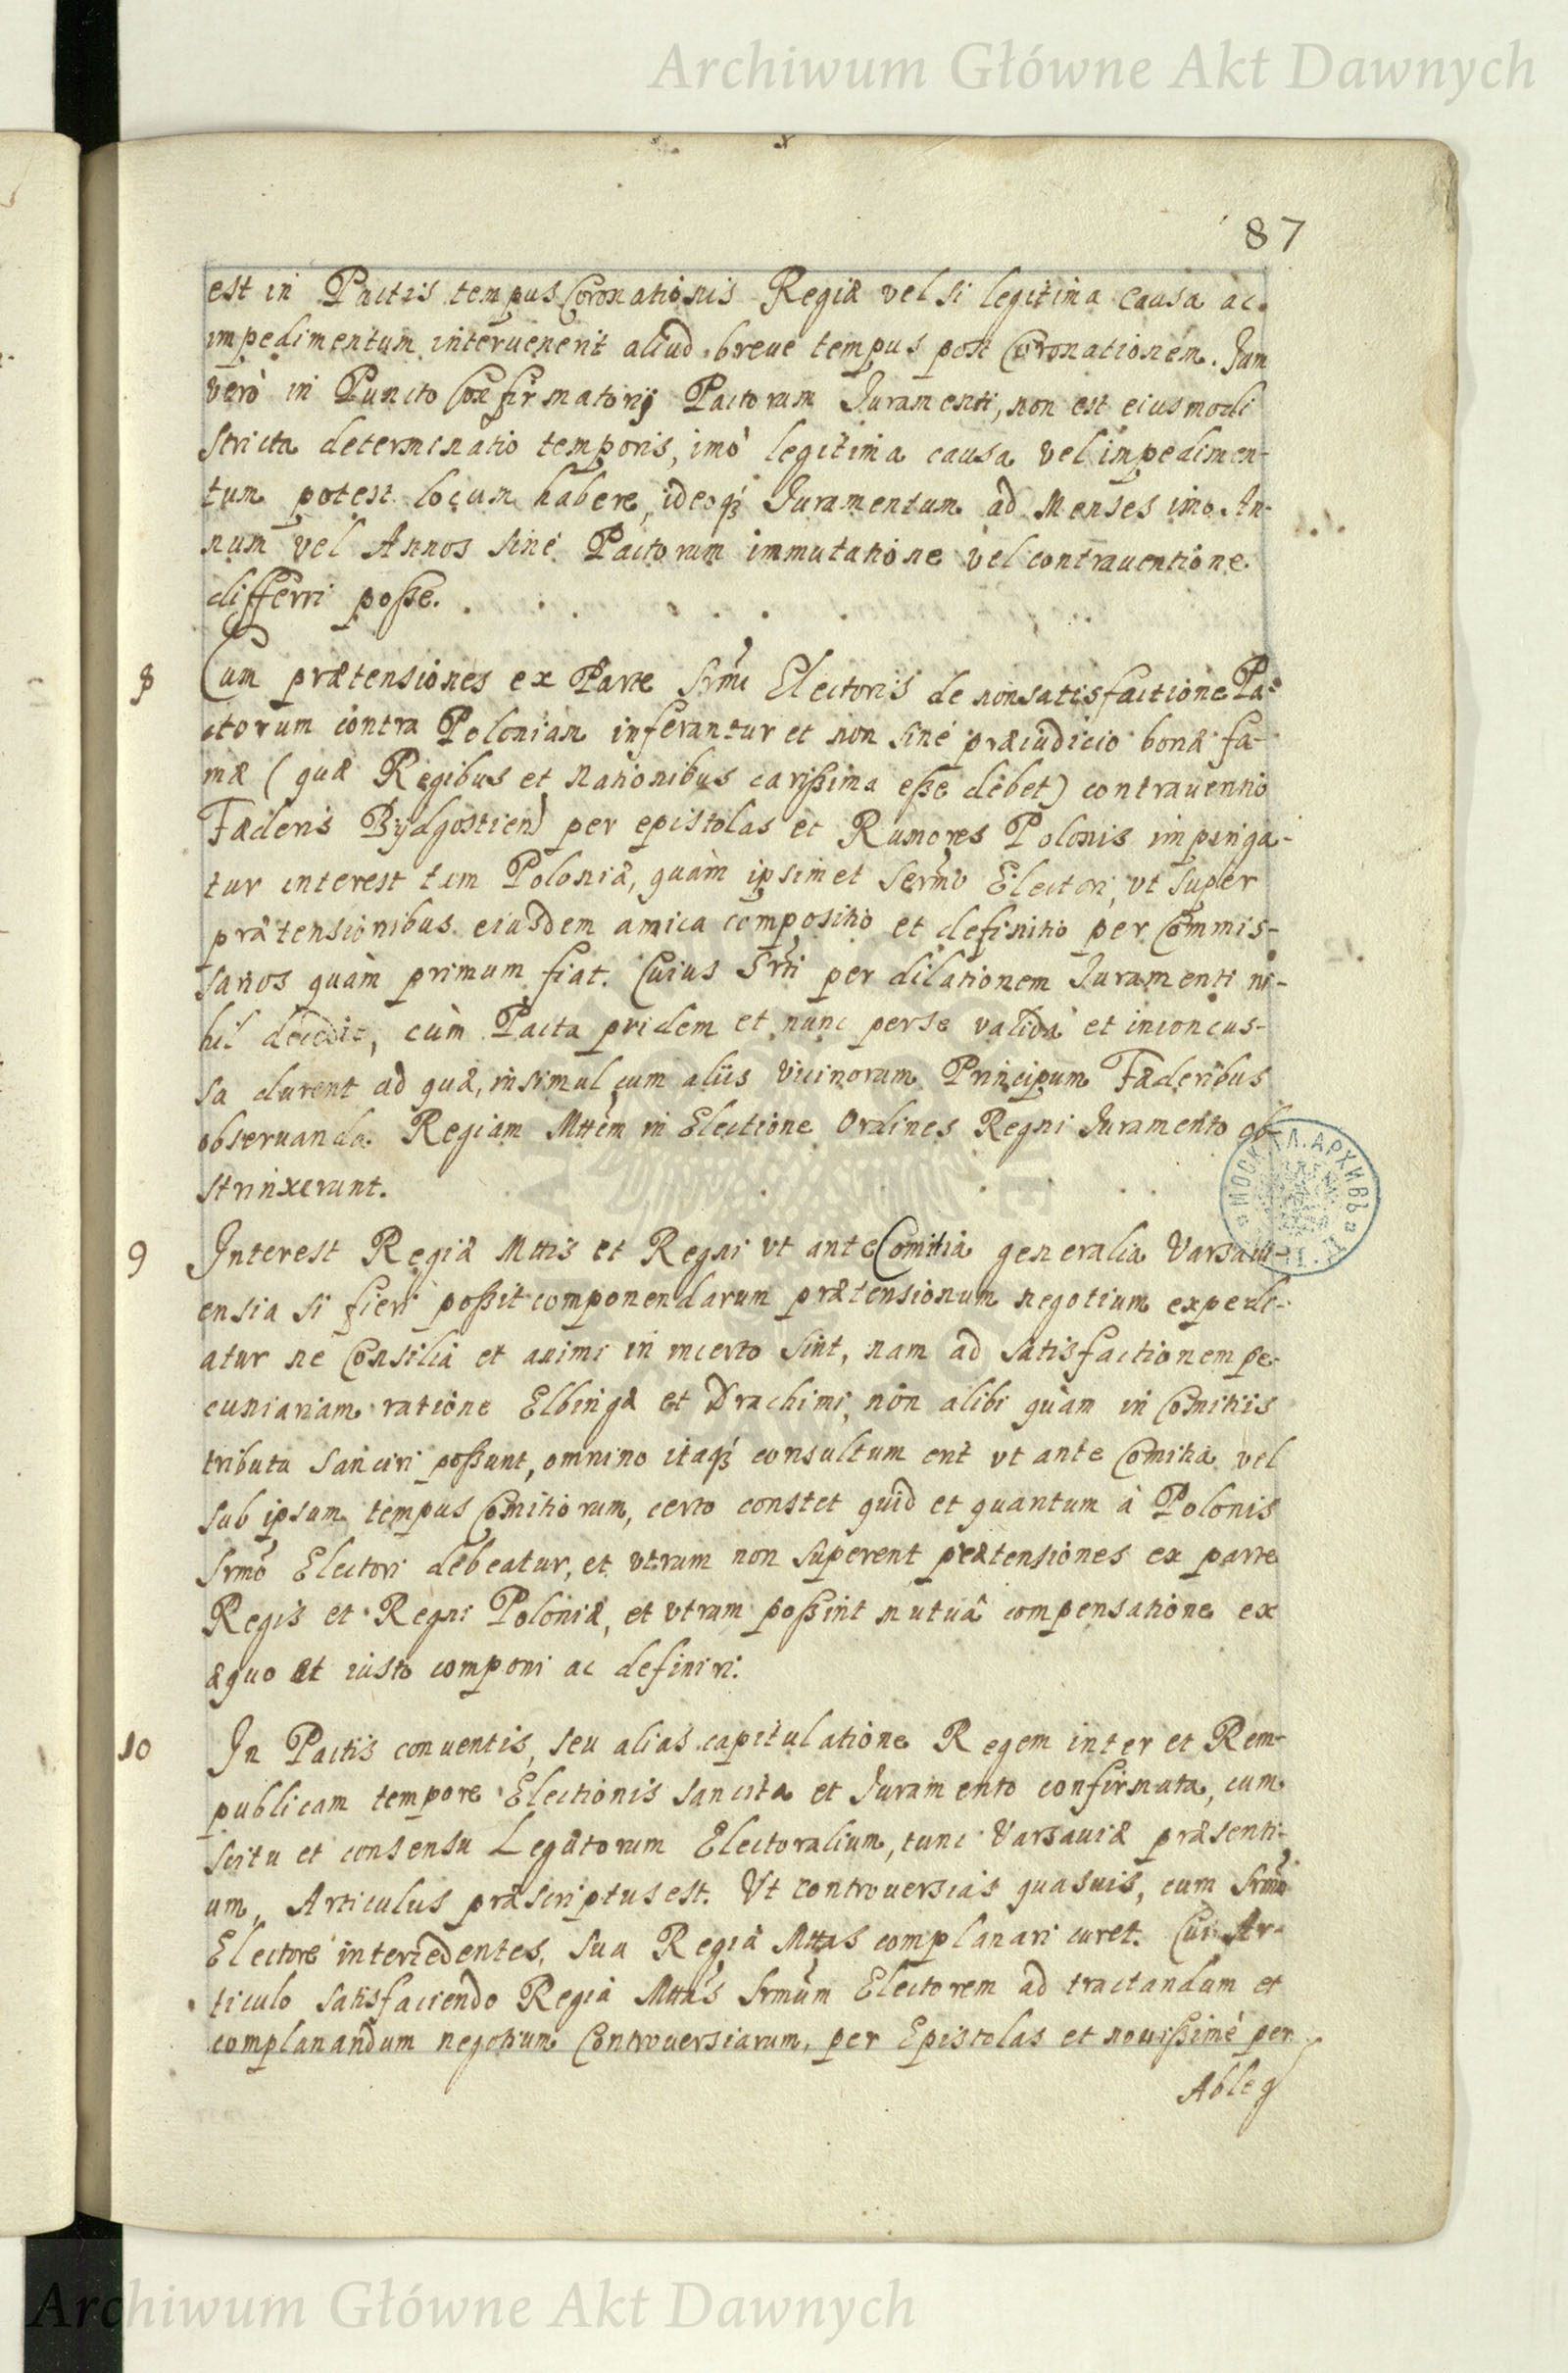 Archiwum Główne Akt Dawnych
87
est in Pactis tempus Coronationis Regiæ vel si legitima causa ac
impedimentum interuenerit aliud breue tempus post Coronationem. Jam
verò in Puncto Confirmatorij Pactorum Juramenti, non est eiusmodi
stricta determinatio temporis, imò legitima causa vel impedimen-
tum potest locum habere, ideoq́ Juramentum ad Menses imo An-
num vel Annos sinè Pactorum immutatione vel contrauentione
differri posse.
8 Cum prætensiones ex Parte Srmi Electoris de non satisfactione Pa-
ctorum contra Poloniam inferantur et non sinè præiudicio bonæ fa-
mæ (quæ Regibus et Nationibus carissima esse debet) contrauentio
Fæderis Bydgostien per epistolas et Rumores Polonis impinga-
tur interest tum Poloniæ, quàm ipsimet Sermo Electori, vt super
prætensionibus eiusdem amica compositio et definitio per Commis-
sarios quàm primum fiat. Cuius Srti per dilationem Juramenti ni-
hil decedit, cùm Pacta pridem et nunc per se valida et inconcus-
sa durent ad quæ, insimul cum aliis Vicinorum Principum Fæderibus
obseruanda Regiam Mttem in Electione Ordines Regni Juramento ob-
strinxerunt.
9 Interest Regiæ Mttis et Regni vt ante Comitia generalia Varsaui-
ensia si fieri possit componendarum prætensionum negotium expedi-
atur ne Consilia et animi in incerto sint, nam ad satisfactionem pe-
cuniariam ratione Elbingæ et Drachimi, non alibi quàm in Comitiis
tributa sanciri possunt, omnino itaq́ consultum erit vt ante Comitia vel
sub ipsum tempus Comitiorum, certo constet quid et quantum à Polonis
Srmo Electori debeatur, et vtrum non superent prætensiones ex parte
Regis et Regni Poloniæ, et vtrum possint mutuâ compensatione ex
æquo et iusto componi ac definiri.
10 In Pactis conuentis, seu alias capitulatione Regem inter et Rem-
publicam tempore Electionis sancita et Juramento confirmata, cum
scitu et consensu Legatorum Electoralium, tunc Varsauiæ præsenti-
um, Articulus præscriptus est. Vt controuersias quasuis, cum Srmo
Electore intercedentes, Sua Regia Mttas complanari curet. Cui Ar-
ticulo satisfaciendo Regia Mttas Srmum Electorem ad tractandum et
complanandum negotium Controuersiarum, per Epistolas et nouissimè per
Ableg
МОСК ГЛ. АРХИВЪ
Archiwum Główne Akt Dawnych